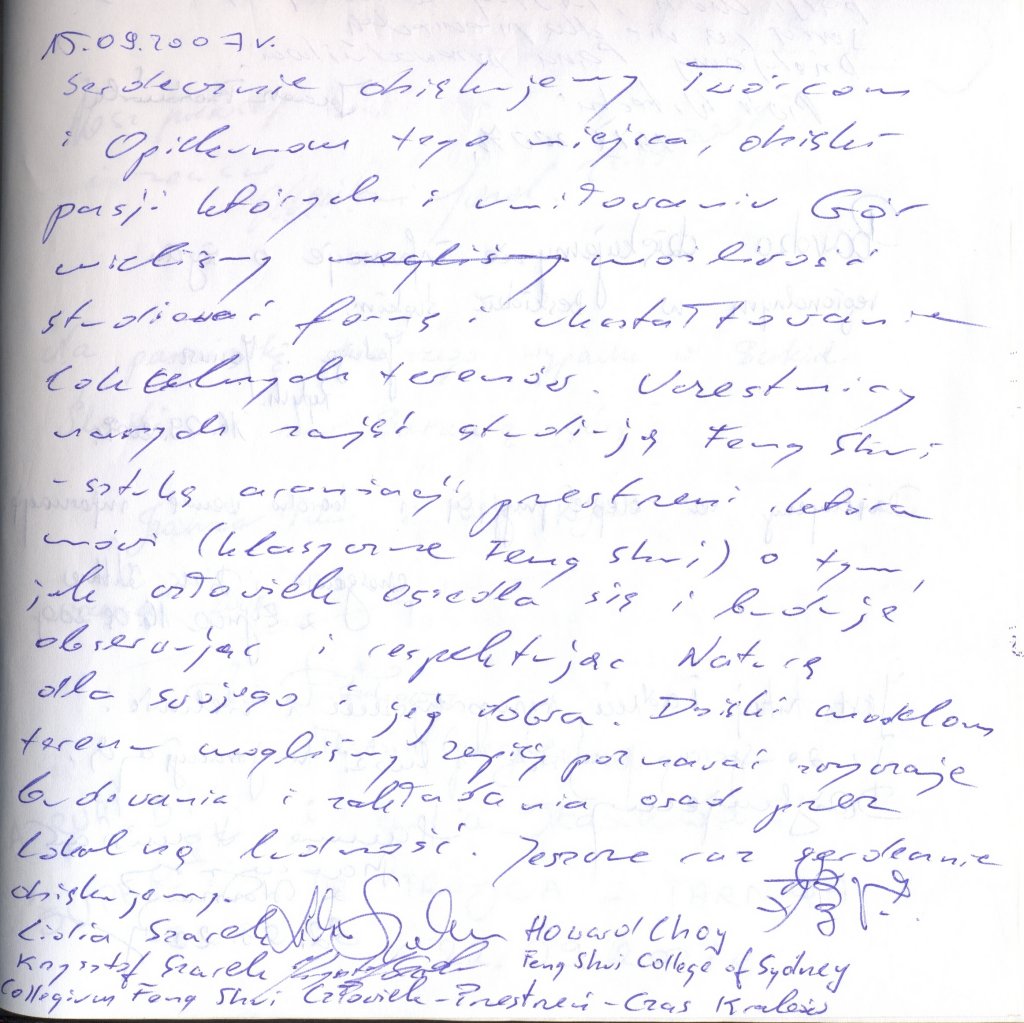 15.09.2007 r.
Serdecznie dziękujemy Twórcom
i Opiekunom tego miejsca, dzięki
pasji których i umiłowaniu Gór
mieliśmy mogliśmy możliwość
studiować formę i ukształtowanie
lokalnych terenów. Uczestnicy
naszych zajęć studiują Feng Shui
- sztukę aranżacji przestrzeni która
mówi (klasyczne Feng Shui) o tym,
jak człowiek osiedla się i buduje
obserwując i respektując Naturę
dla swojego i jej dobra. Dzięki modelom
terenu mogliśmy lepiej poznawać zwyczaje
budowania i zakładania osad przez
lokalną ludność. Jeszcze raz serdecznie
dziękujemy.
Lidia Szarek Howard Choy
Krzysztof Szarek Feng Shui College of Sydney
Collegium Feng Shui Człowiek-Przestrzeń-Czas Kraków